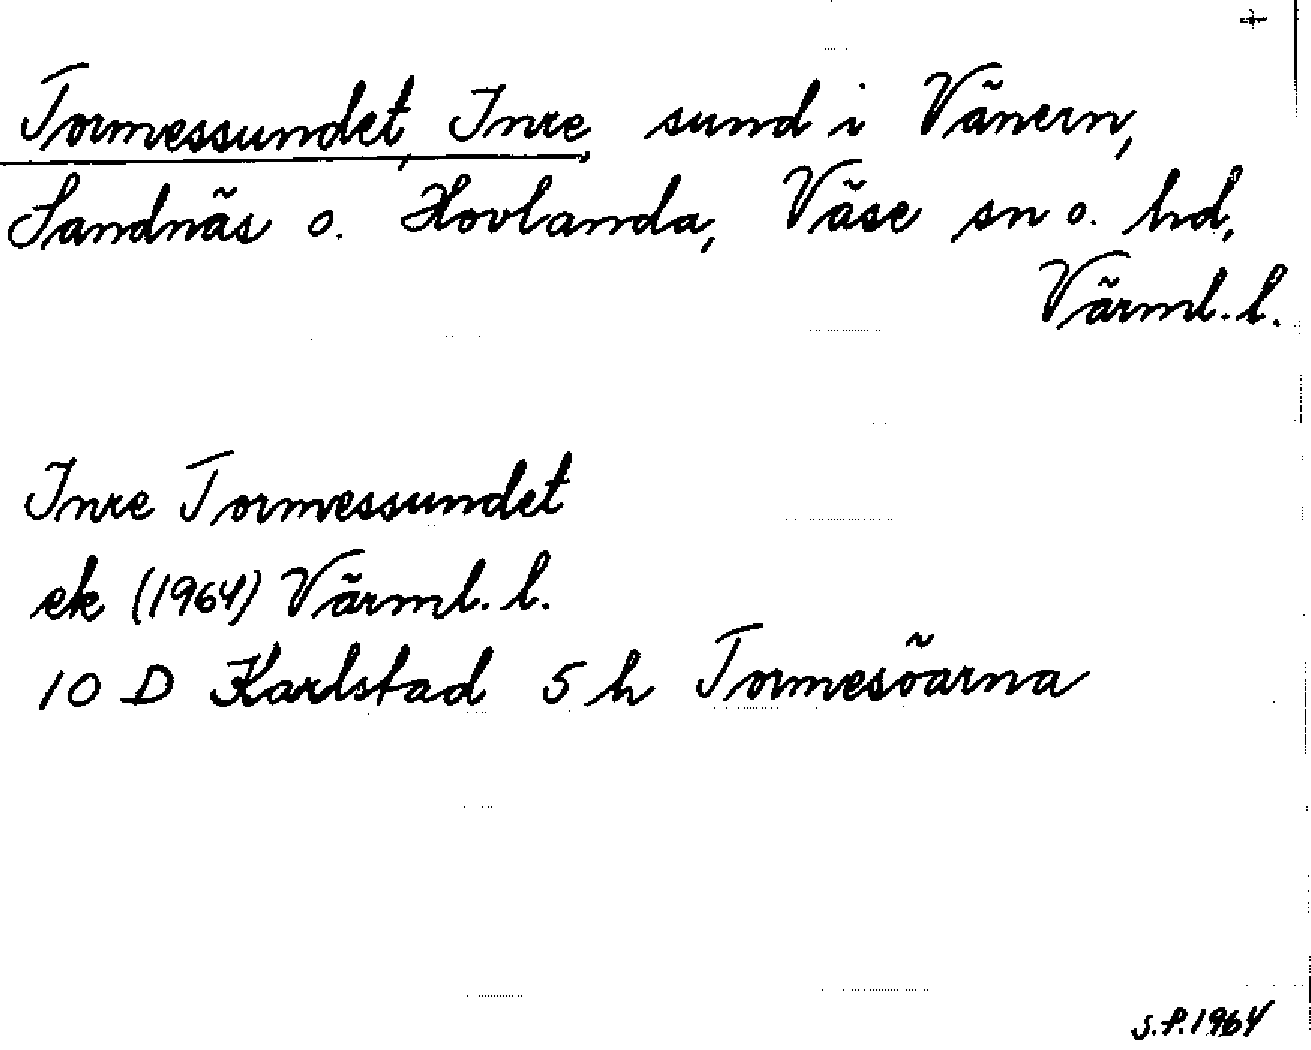 Tormessundet, Inre, sund i Vänern,
Sandnäs o. Hovlanda, Väse sn o. hd,
Värml. l.
Inre Tormessundet
ek (1964) Värml. l.
10 D Karlstad 5 h Tormesöarna
S.P. 1964